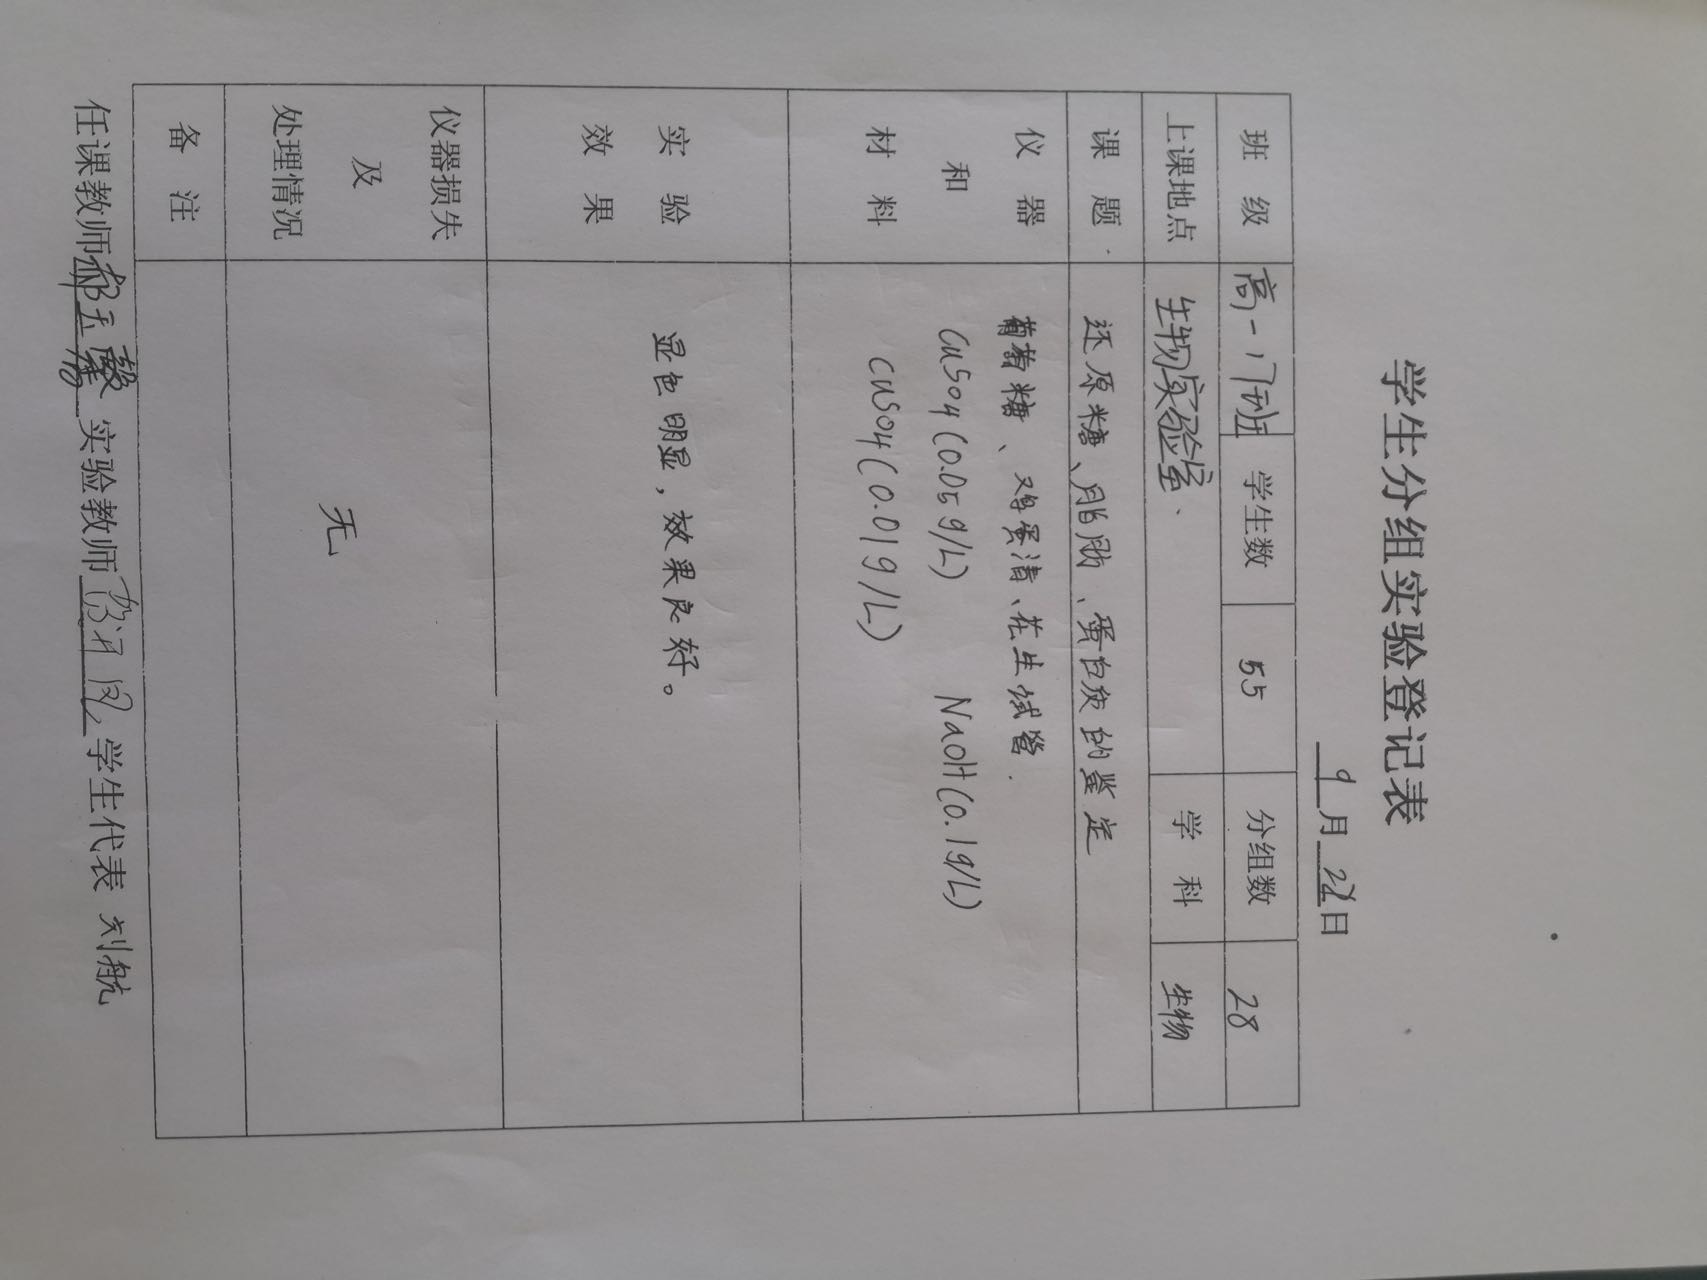 学生分组实验登记表
9月2日
班 级 高一17班 学生数 55 分组数 28
上课地点 生物实验室、 学 科 生物
课 题 还原糖、脂肪、蛋白质的鉴定
仪 器 和 材 料 葡萄糖、鸡蛋清、花生 试管.
CuSO4(0.05g/L) NaOH(0.1g/L)
CuSO4(0.01g/L)
实 验 效 果 显色明显，效果良好。
仪器损失 及 处理情况 无
备 注
任课教师 实验教师 学生代表 刘航